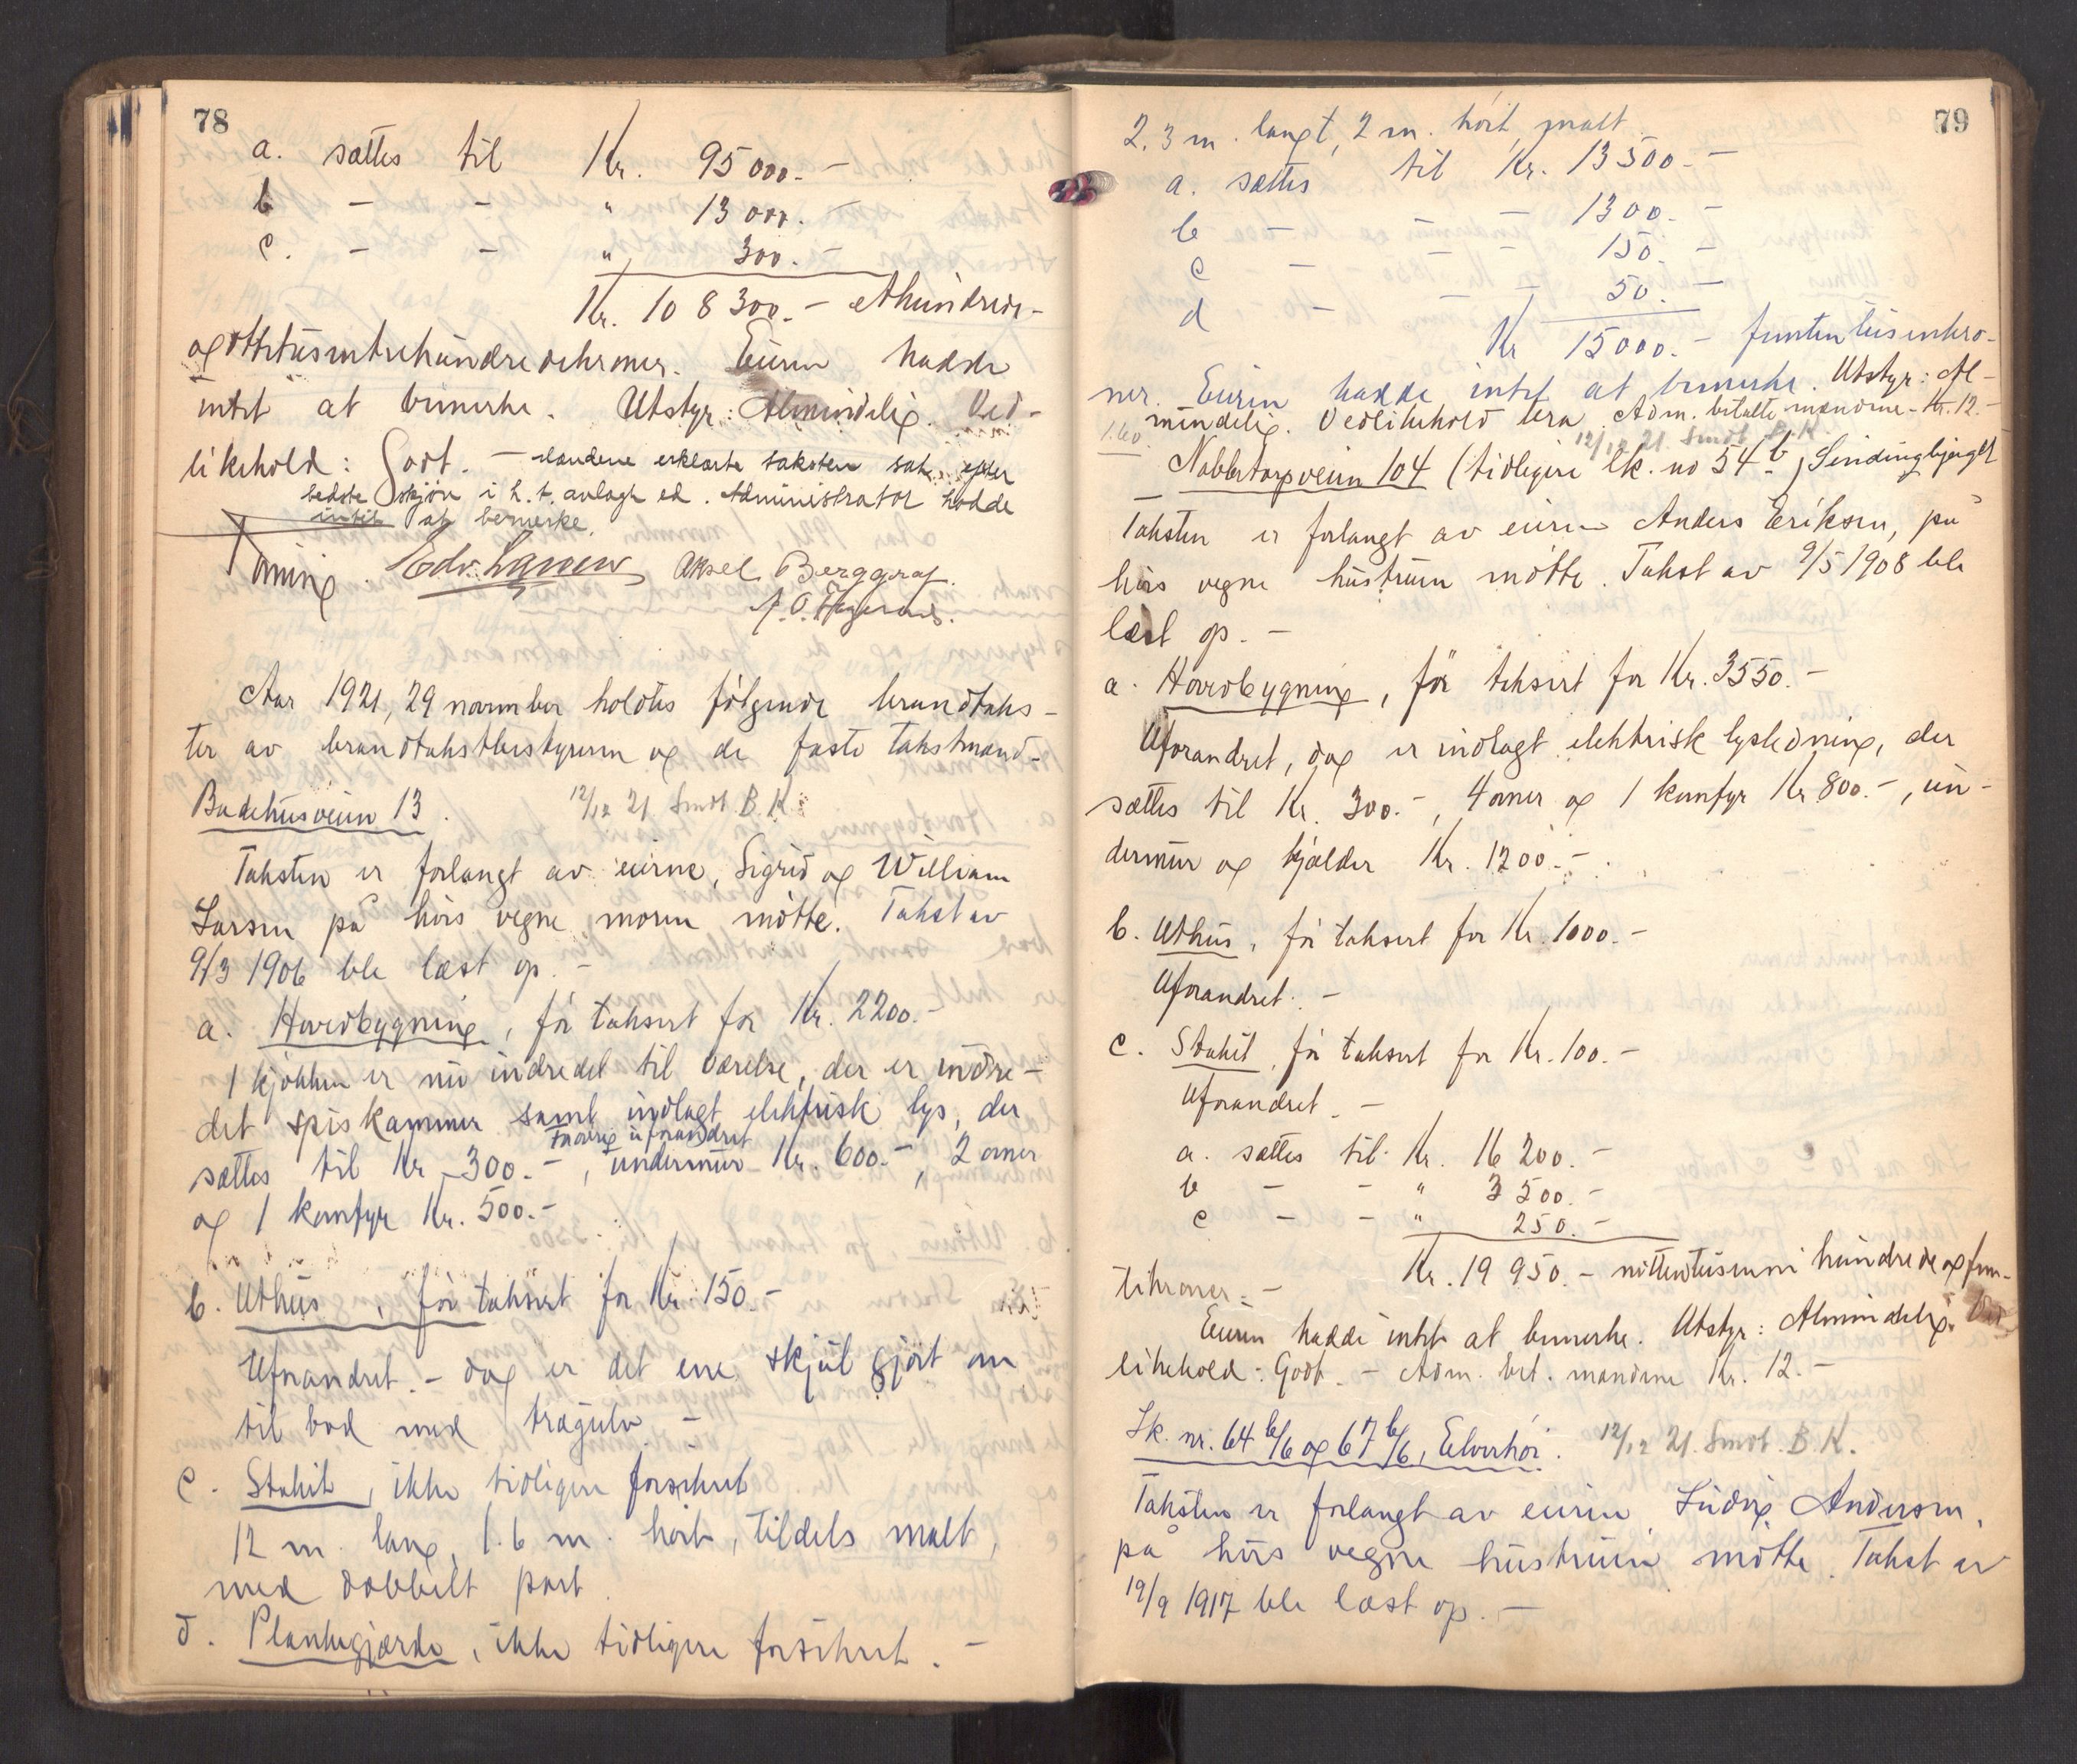 78
a. sættes til Kr. 95 000.-
b - - " 13 000.-
c. - - " 300.-
Kr. 108 300.- ethundrede-
ogottetusentrehundredekroner. Eieren hadde
intet at bemerke. Utstyr: Almindelig. Ved-
likehold: Godt. - Mændene erklærte taksten sat efter
bedste skjøn i h. t. avlagt ed. Administrator hadde
intet at bemerke.
Tønning. Edv. Larsen Aksel Berggraf.
Aar 1921, 29 november holdtes følgende brandtaks-
ter av brandtakstbestyreren og de faste takstmænd.
Badehusveien 13. 12/12 21 Sendt B.K.
Taksten er forlangt av eierne, Sigrid og William
Larsen på hvis vegne moren møtte. Takst av
9/3 1906 ble læst op. -
a. Hovedbygning, før taksert for Kr. 2200.-
1 kjøkken er nu indredet til værelse, der er indre-
det spiskammer samt indlagt elektrisk lys, der
sættes til Kr. 300.-, Forøvrig uforandret undermur Kr. 600.-, 2 ovner
og 1 komfyr Kr. 500.-
b. Uthus, før taksert for Kr. 150.-
Uforandret. - dog er det ene skjul gjort om
til bod med trægulv. -
c. Stakit, ikke tidligere forsikret
12 m. lang, 1.6 m. høit, tildels malt,
med dobbelt port.
d. Plankegjærde, ikke tidligere forsikret. -
79
2,3 m. langt, 2 m. høit, malt.
a. sættes til Kr. 13500.-
b - - 1300.-
c - - 150.-
d - - 50.-
Kr 15000.- femtentusenkro-
ner. Eieren hadde intet at bemerke. Utstyr: Al-
mindelig. Vedlikehold bra. Adm. betalte mændene Kr. 12.-
1.60 12/12 21 Sendt B.K.
Nabbetorpveien 104 (tidligere lk. no 54 b, Sindingbjerget
Taksten er forlangt av eieren Anders Eriksen, på
hvis vegne hustruen møtte. Takst av 9/5 1908 ble
læst op. -
a. Hovedbygning, før taksert for Kr. 3550.-
Uforandret, dog er indlagt elektrisk lysledning, der
sættes til Kr. 300.-, 4 ovner og 1 komfyr Kr 800.-, un-
dermur og kjælder Kr. 1200.-.
b. Uthus, før taksert for Kr. 1000.-
Uforandret. -
c. Stakit, før taksert for Kr. 100.-
Uforandret. -
a. sættes til Kr. 16 200.-
b - - " 3 500.-
c - - " 250.-
Kr. 19 950.- nittentusennihundredeogfem-
tikroner. -
Eieren hadde intet at bemerke. Utstyr: Almindelig. Ved-
likehold: Godt. - Adm. bet. mændene Kr. 12.-
Lk. nr. 64 b/6 og 67 b/6, Elverhøi. 12/12 21. Sendt. B.K.
Taksten er forlangt av eieren, Ludvig Andersen,
på hvis vegne hustruen møtte. Takst av
19/9 1917 ble læst op. -